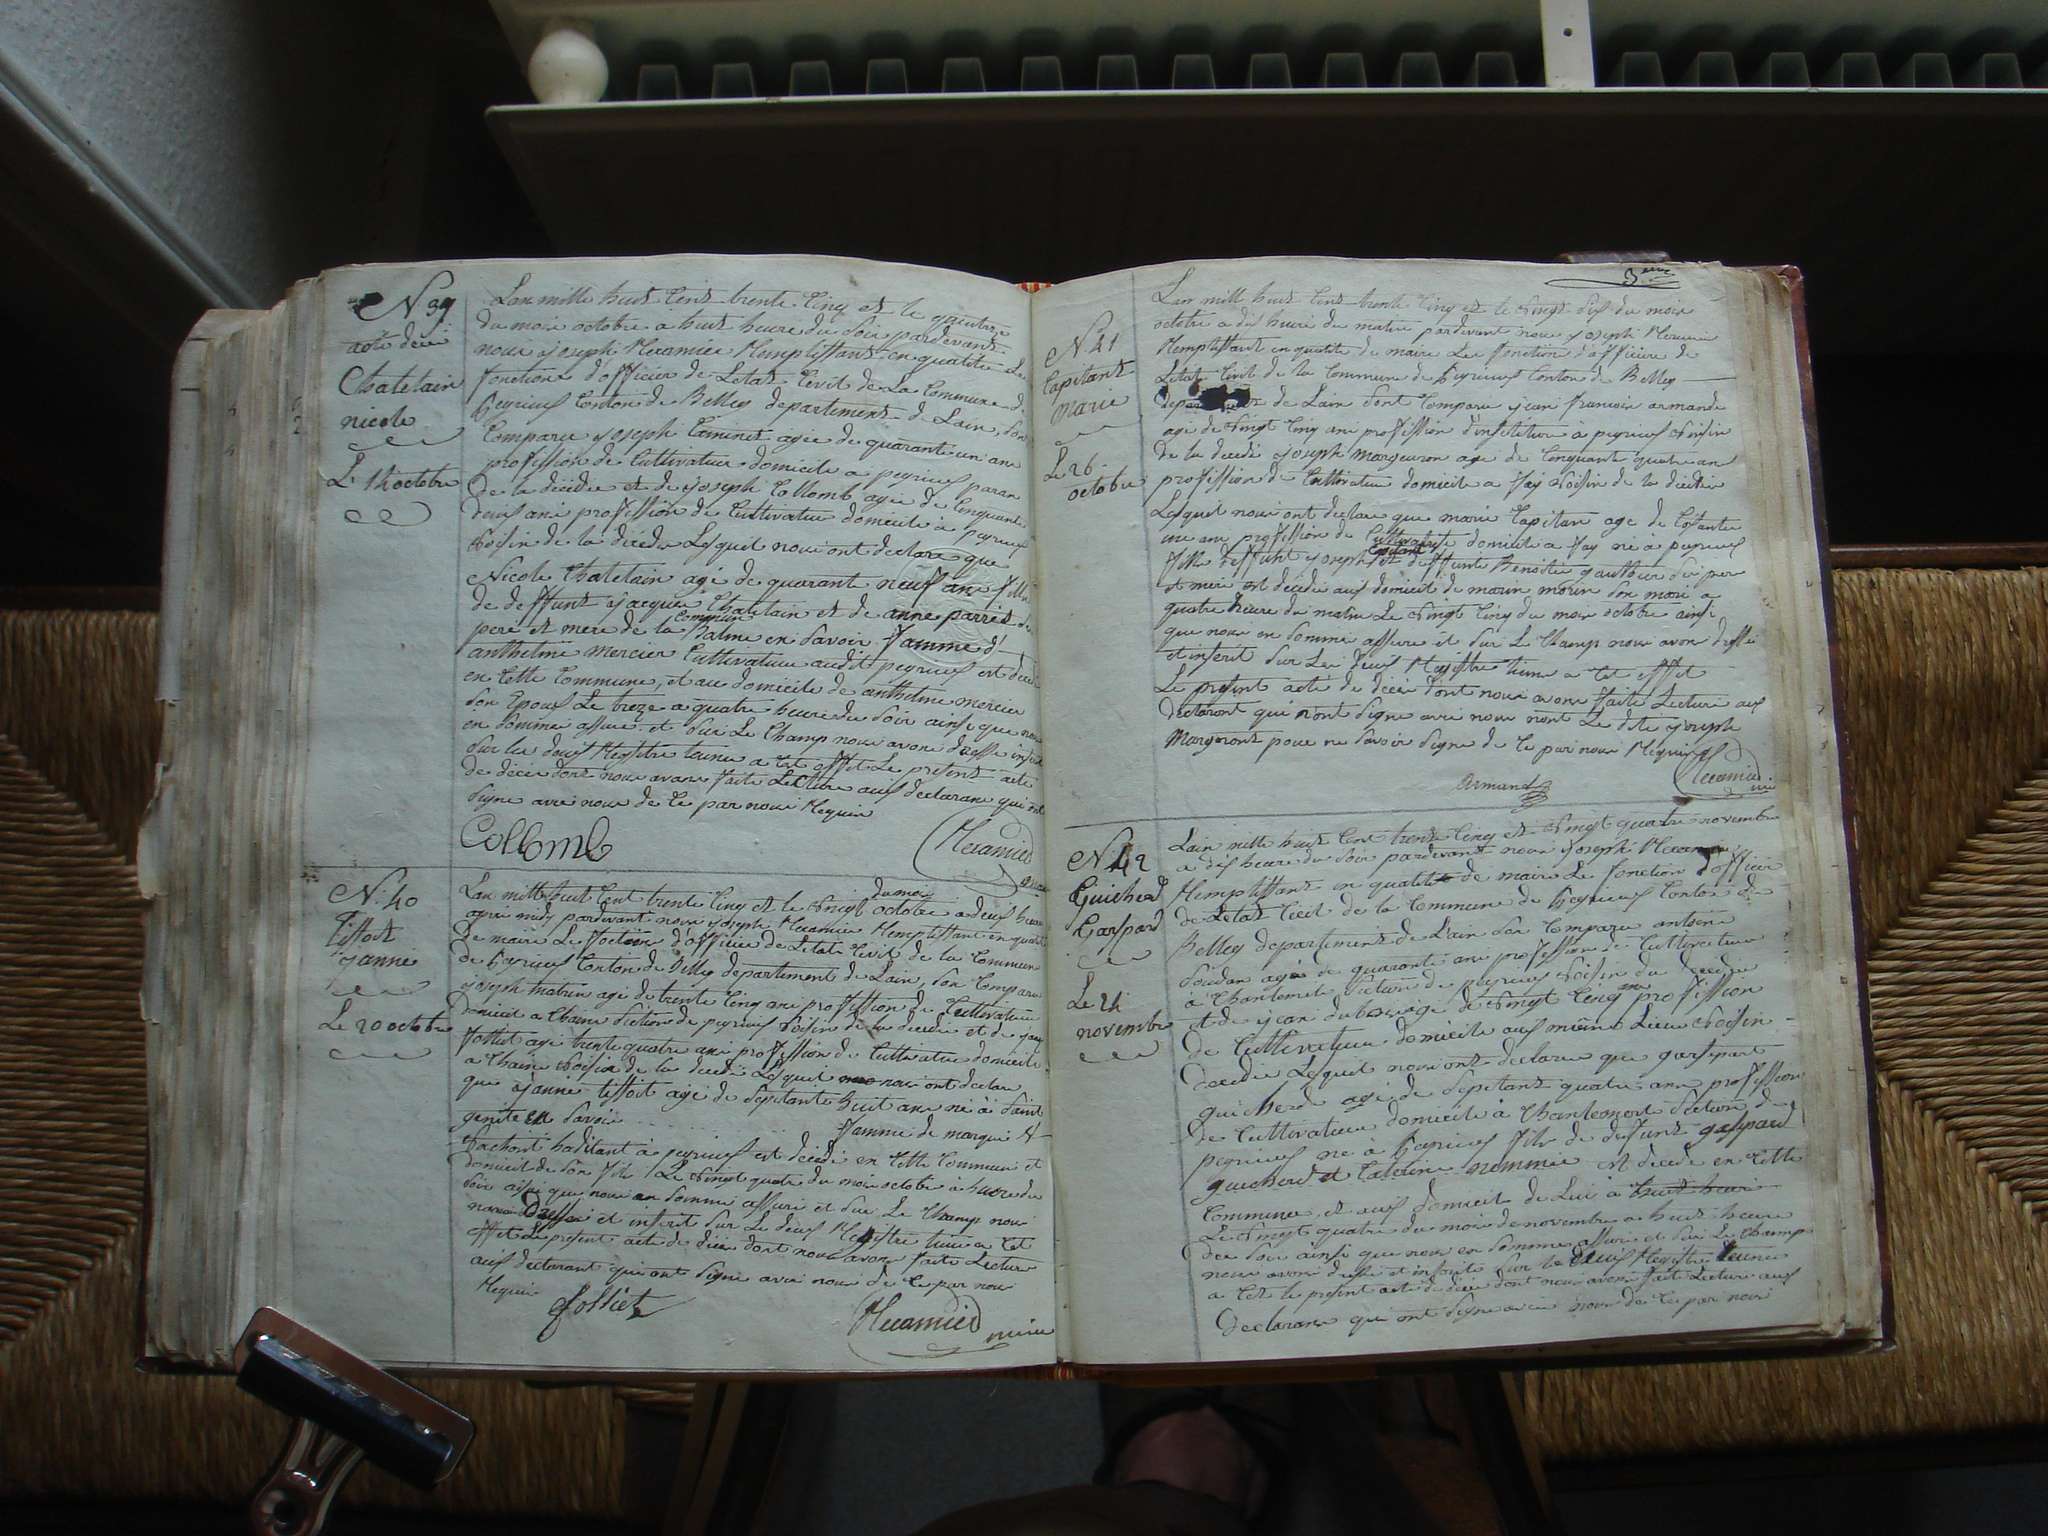 N 39
acte décè
Chatelain
nicole
Le 14 octobre
Lan mille huit Cent trente Cinq et le
du mois octobre a huit heure du Soir pardevant
nous joseph Mecamier Remplissant en qualite Le
fonction d'officier de Letat Civil de La Commune de
peyrieu Conton de Belley departement de Lain, Son
Comparu joseph Caminet agée de quarant un ans
profission de Cultivateur domicile a peyrieu paran
de la décédée et de joseph Collomb agée de Cinquante
deux ans profission de Cultivateur domicile à peyrieu
voisin de la décédé Lesquel nous ont declare que
Nicole Chatelain agé de quarant neuf ans fille
de deffunt jacques Chatelain et de anne parret Se
pere et mere de la Commun Balme en Savoie famme d'
anthelme mercier Cultivateur audit peyrieu est décédé
en Cette Commune, et au domicile de anthelme mercier
Son Epoux Le treze a quatre heure du Soir ainsi que nou
en Somme assure et Sur Le Champ nous avons dresse inscrit
Sur les deux Registre tenue a Cet effet Le present acte
de décès dont nous avons faite Lecture aux declarans qui ont
Signe avec nous de Ce par nous Requis
Collomb
Mecamier
N. 40
Tissot
janne
Le 20 octobre
Lan mille huit Cent trente Cinq et le vingt du moi octobre a deux heure
apres midy pardevant nous joseph Mecamier Remplissant en qualite
de maire Le fonction d'officier de Letat Civil de la Commune
de peyrieu Conton de Belley departement de Lain, Son Comparu
joseph matrin agé de trente Cinq ans profission de Cultivateur
Domicile a Chaine Section de peyrieu voisin de la décédé et de
follict agé trente quatre ans profission de Cultivateur domicile
a Chaine voisin de la décédé Lesquel nous ont declare
que janne tissot agé de Sepetante huit ans né à Saint
genite en Savoie famme de marqui
habitant à peyrieu est décédé en Cette Commune et
domicile de Son fils Le vingt quatre du mois octobre à heure du
Soir ainsi que nous en Somme assure et Sur Le Champ nous
avons dresse et inscrit Sur Le deux Registre tenue a Cet
effet Le present acte de décès dont nous avons faite Lecture
aux declarant qui ont Signe avec nous de Ce par nous
Requis
follict
Mecamier maire
N. 41
Capitant
Marie
Le 26
octobre
Lan mill huit Cent trente Cinq et le vingt Six du mois
octobre a dix heure du matin pardevant nous joseph Mecamier
Remplissant en qualite de maire Les fonction d'officier de
Letat Civil de la Commune de peyrieu Conton de Belley
de Lain Sont Comparu jean francois armand
agé de vingt Cinq ans profission d'institeur à peyrieu voisin
de la décédé joseph margeron age de Cinquante quatre ans
profission de Cultivateur domicile a Fay voisin de la décédée
Lesquel nous ont declare que marie Capitan age de Soisante
un ans profission de Cultivatrice domicile a Fay né à peyrieu
fille deffunt joseph Capitant et deffunte Benoite gauthier Ses pere
et mere est décédé aux domicile de marin morin Son mari a
quatre heure du matin Le vingt Cinq du mois octobre ainsi
que nous en Somme assure et Sur Le Champ nous avon dresse
et inscrit Sur Les deux Registre tenue a Cet effet
Le present acte de décès dont nous avons faite Lecture aux
declaront qui n'ont Signe avec nous nont Le dite joseph
Margeront pour ne Savoir Signe de Ce par nous Requis
Armand
Mecamier
N. 42
Guicherd
Gaspard
Le 24
novembre
Lain mille huit Cent trente Cinq et vingt quatre novembre
a dix heure du Soir pardevant nous joseph Mecamier
Remplissant en qualite de maire Le fonction d'officier
de Letat Civil de la Commune de peyrieu Conton de
Belley departement de Lain Son Comparu antoine
Soudan agé de quarante ans profission de Cultivateur
à Chantemert Section de peyrieu voisin du décédé
et de jean duborgé de vingt Cinq ans profission
de Cultivateur domicile aux même Lieu voisin
décédée Lesquel nous ont declare que gaspart
guicherd agé de Sepetant quatre ans profission
de Cultivateur domicile à Chantemert Section de
peyrieu né à peyrieu fils de defunt gaspard
guicherd et Caterine nommie est décédé en Cette
Commune et aux domicile de Lui a huit heure
Le vingt quatre du mois de novembre a huit heure
du Soir ainsi que nous en Somme assure et Sur Le Champ
nous avons dresse et inscrit Sur le deux Registre tenue
a Cet le present acte de décès dont nous avons faite Lecture aux
declarans qui ont Signe avec nous de Ce par nous